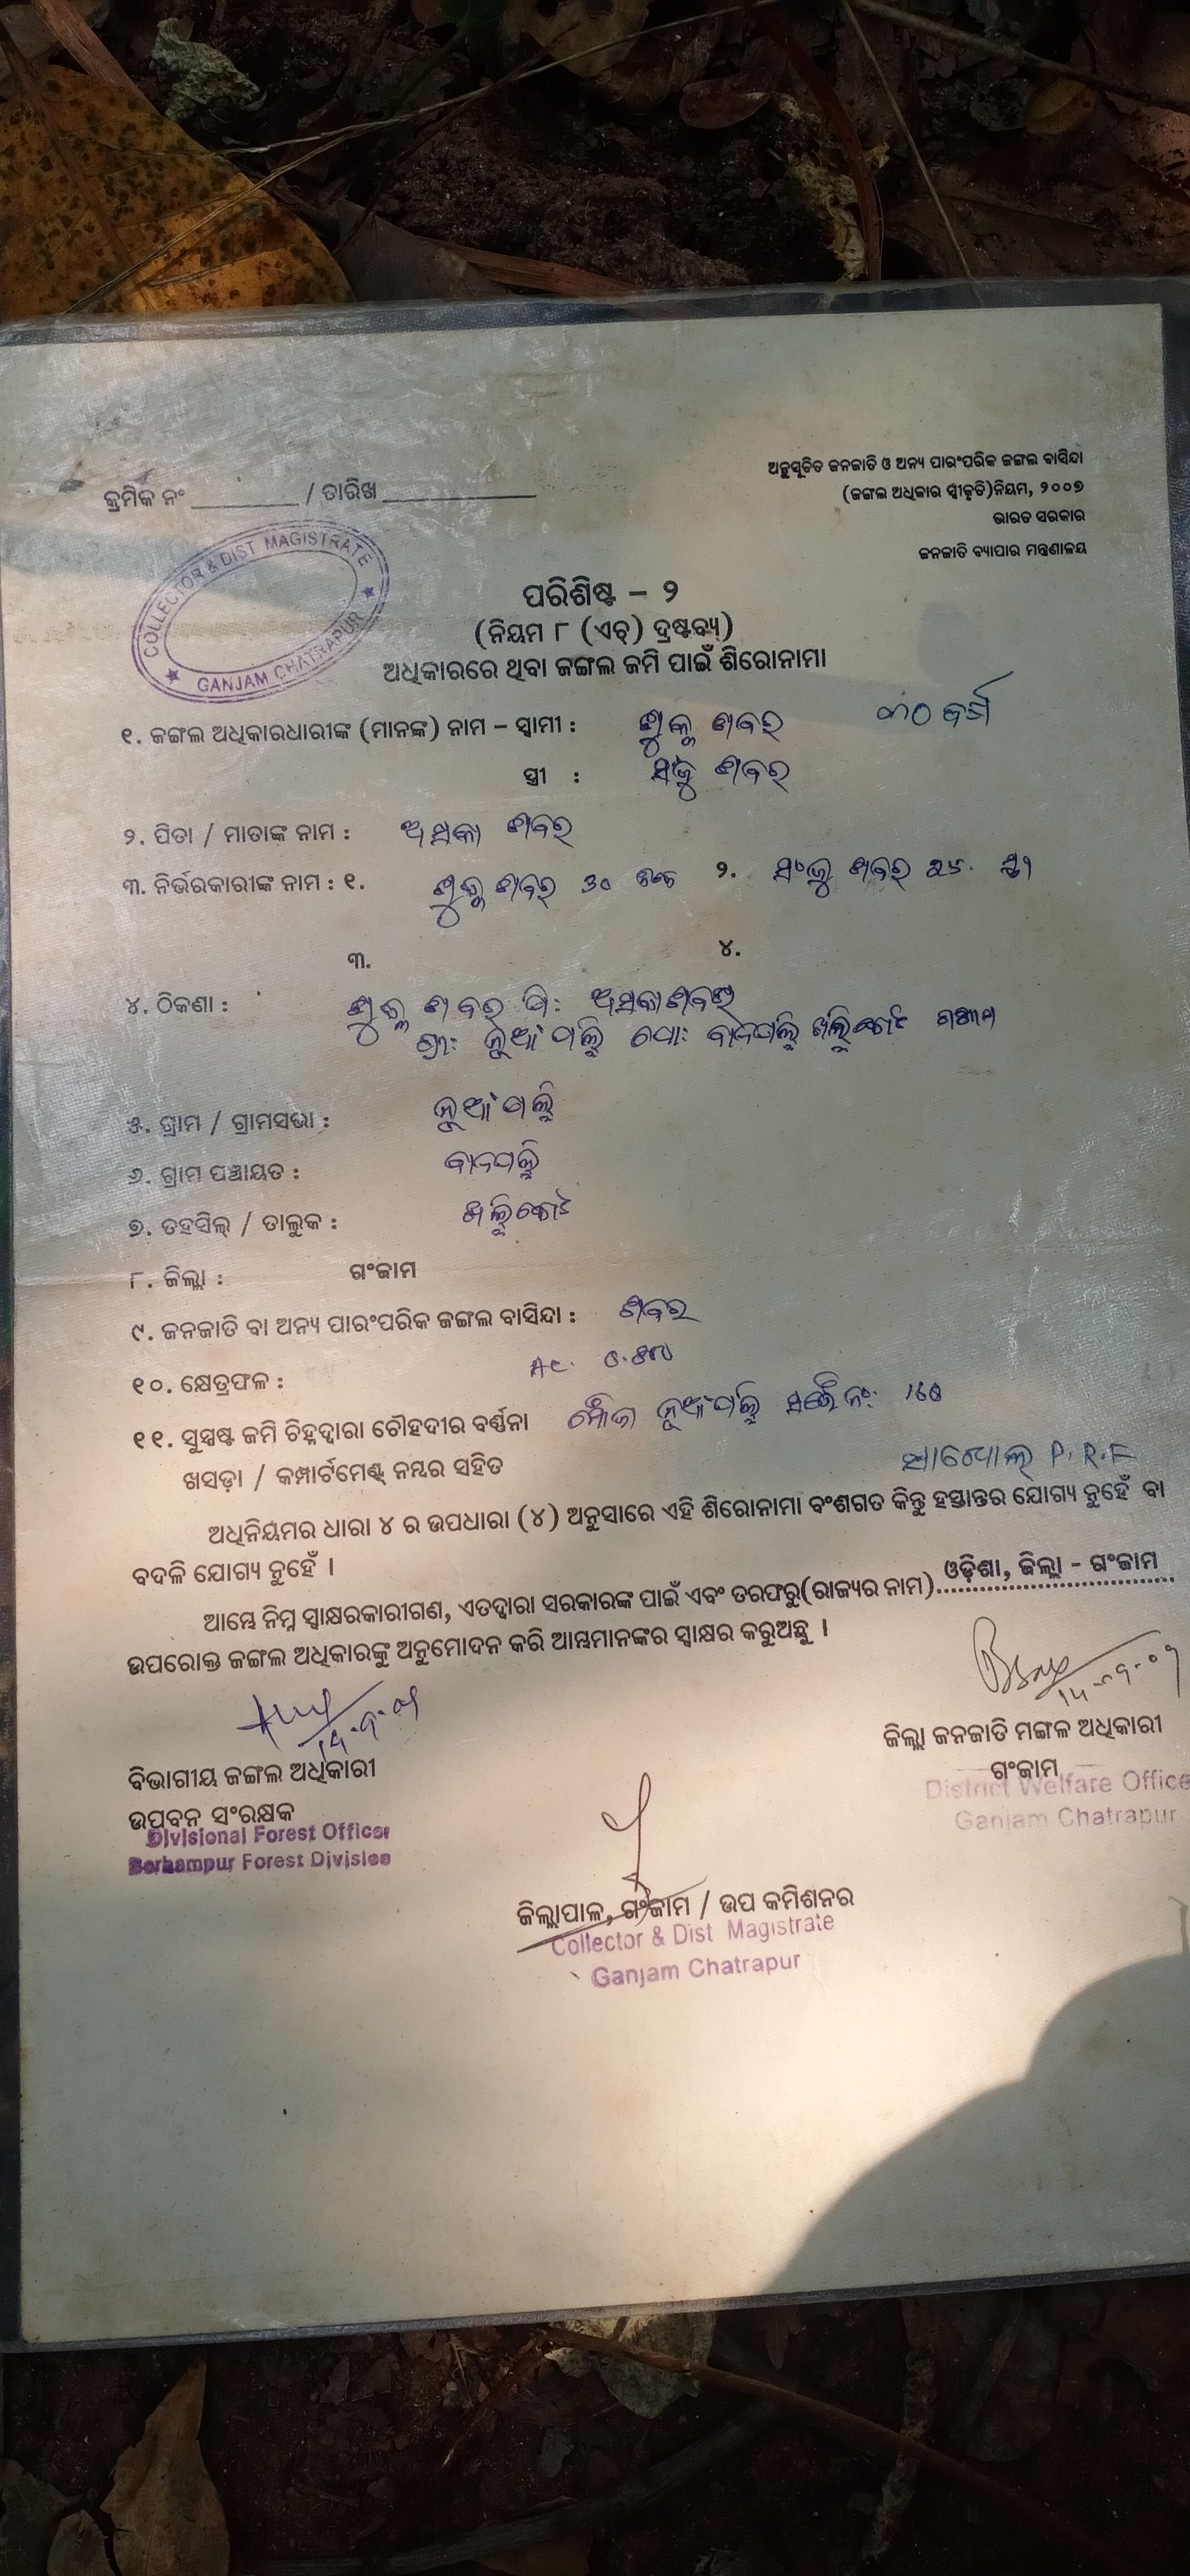 ଅନୁସୂଚିତ ଜନଜାତି ଓ ଅନ୍ୟ ପାରଂପରିକ ଜଙ୍ଗଲ ବାସିନ୍ଦା
(ଜଙ୍ଗଲ ଅଧିକାର ସ୍ୱୀକୃତି)ନିୟମ, ୨୦୦୭
ଭାରତ ସରକାର
ଜନଜାତି ବ୍ୟାପାର ମନ୍ତ୍ରଣାଳୟ
କ୍ରମିକ ନଂ ________ / ତାରିଖ ____________
COLLECTOR & DIST MAGISTRATE
GANJAM CHATRAPUR
ପରିଶିଷ୍ଟ – ୨
(ନିୟମ ୮ (ଏଚ୍) ଦ୍ରଷ୍ଟବ୍ୟ)
ଅଧିକାରରେ ଥିବା ଜଙ୍ଗଲ ଜମି ପାଇଁ ଶିରୋନାମା
୧. ଜଙ୍ଗଲ ଅଧିକାରଧାରୀଙ୍କ (ମାନଙ୍କ) ନାମ – ସ୍ୱାମୀ : ଶବର ୩୦ ବର୍ଷ
ସ୍ତ୍ରୀ : ସଂଜୁ ଶବର
୨. ପିତା / ମାତାଙ୍କ ନାମ : ଅସକା ଶବର
୩. ନିର୍ଭରକାରୀଙ୍କ ନାମ : ୧. ଶବର 30 ୨. ସଂଜୁ ଶବର ୨୫. ସ୍ତ୍ରୀ
୩. ୪.
୪. ଠିକଣା : ଶବର ପି: ଅସକା ଶବର
ଗ୍ରା: ନୂଆଁପଲ୍ଲୀ ପୋ: ବାନପଲ୍ଲୀ ଗଞ୍ଜାମ
୫. ଗ୍ରାମ / ଗ୍ରାମସଭା : ନୂଆଁପଲ୍ଲୀ
୬. ଗ୍ରାମ ପଞ୍ଚାୟତ : ବାନପଲ୍ଲୀ
୭. ତହସିଲ୍ / ତାଲୁକ :
୮. ଜିଲ୍ଲା : ଗଂଜାମ
୯. ଜନଜାତି ବା ଅନ୍ୟ ପାରଂପରିକ ଜଙ୍ଗଲ ବାସିନ୍ଦା : ଶବର
୧୦. କ୍ଷେତ୍ରଫଳ : Ac.
୧୧. ସୁସ୍ପଷ୍ଟ ଜମି ଚିହ୍ନଦ୍ୱାରା ଚୌହଦୀର ବର୍ଣ୍ଣନା ମୌଜା ନୂଆଁପଲ୍ଲୀ ସର୍ଭେ ନଂ:
ଖସଡ଼ା / କମ୍ପାର୍ଟମେଣ୍ଟ୍ ନମ୍ବର ସହିତ P.R.F
ଅଧିନିୟମର ଧାରା ୪ ର ଉପଧାରା (୪) ଅନୁସାରେ ଏହି ଶିରୋନାମା ବଂଶଗତ କିନ୍ତୁ ହସ୍ତାନ୍ତର ଯୋଗ୍ୟ ନୁହେଁ ବା
ବଦଳି ଯୋଗ୍ୟ ନୁହେଁ ।
ଆମ୍ଭେ ନିମ୍ନ ସ୍ୱାକ୍ଷରକାରୀଗଣ, ଏତଦ୍ଦ୍ୱାରା ସରକାରଙ୍କ ପାଇଁ ଏବଂ ତରଫରୁ(ରାଜ୍ୟର ନାମ)ଓଡ଼ିଶା, ଜିଲ୍ଲା - ଗଂଜାମ
ଉପରୋକ୍ତ ଜଙ୍ଗଲ ଅଧିକାରଙ୍କୁ ଅନୁମୋଦନ କରି ଆମ୍ଭମାନଙ୍କର ସ୍ୱାକ୍ଷର କରୁଅଛୁ ।
ଜିଲ୍ଲା ଜନଜାତି ମଙ୍ଗଳ ଅଧିକାରୀ
ଗଂଜାମ
District Welfare Office
Ganjam Chatrapur
ବିଭାଗୀୟ ଜଙ୍ଗଲ ଅଧିକାରୀ
ଉପବନ ସଂରକ୍ଷକ
Divisional Forest Officer
Berhampur Forest Division
ଜିଲ୍ଲାପାଳ, ଗଂଜାମ / ଉପ କମିଶନର
Collector & Dist Magistrate
Ganjam Chatrapur